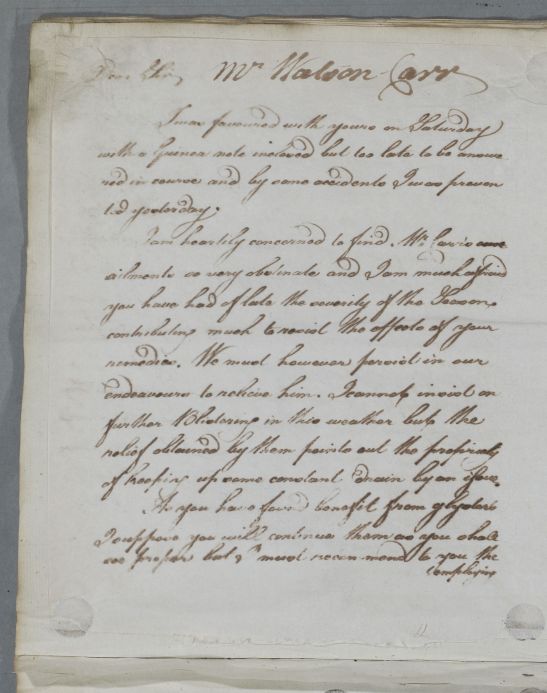 Dear Sir, Mr Watson Carr
I was favoured with yours on Saturday
with a Guinea note inclosed but too late to be answe
red in course and by some accidents I was preven
ted yesterday.
I am heartily concerned to find Mr Carr's
ailments so very obstinate and I am much afraid
you have had of late the severity of the Season
contributing much to resist the effects of your
remedies. We must however persist in our
endeavours to relieve him. I cannot insist on
further Blistering in this weather but the
relief obtained by them points out the propriety
of keeping up some constant drain by an issue.
As you have found benefit from glysters
I suppose you will continue them as you shall
see proper but I must recommend to you the
employing